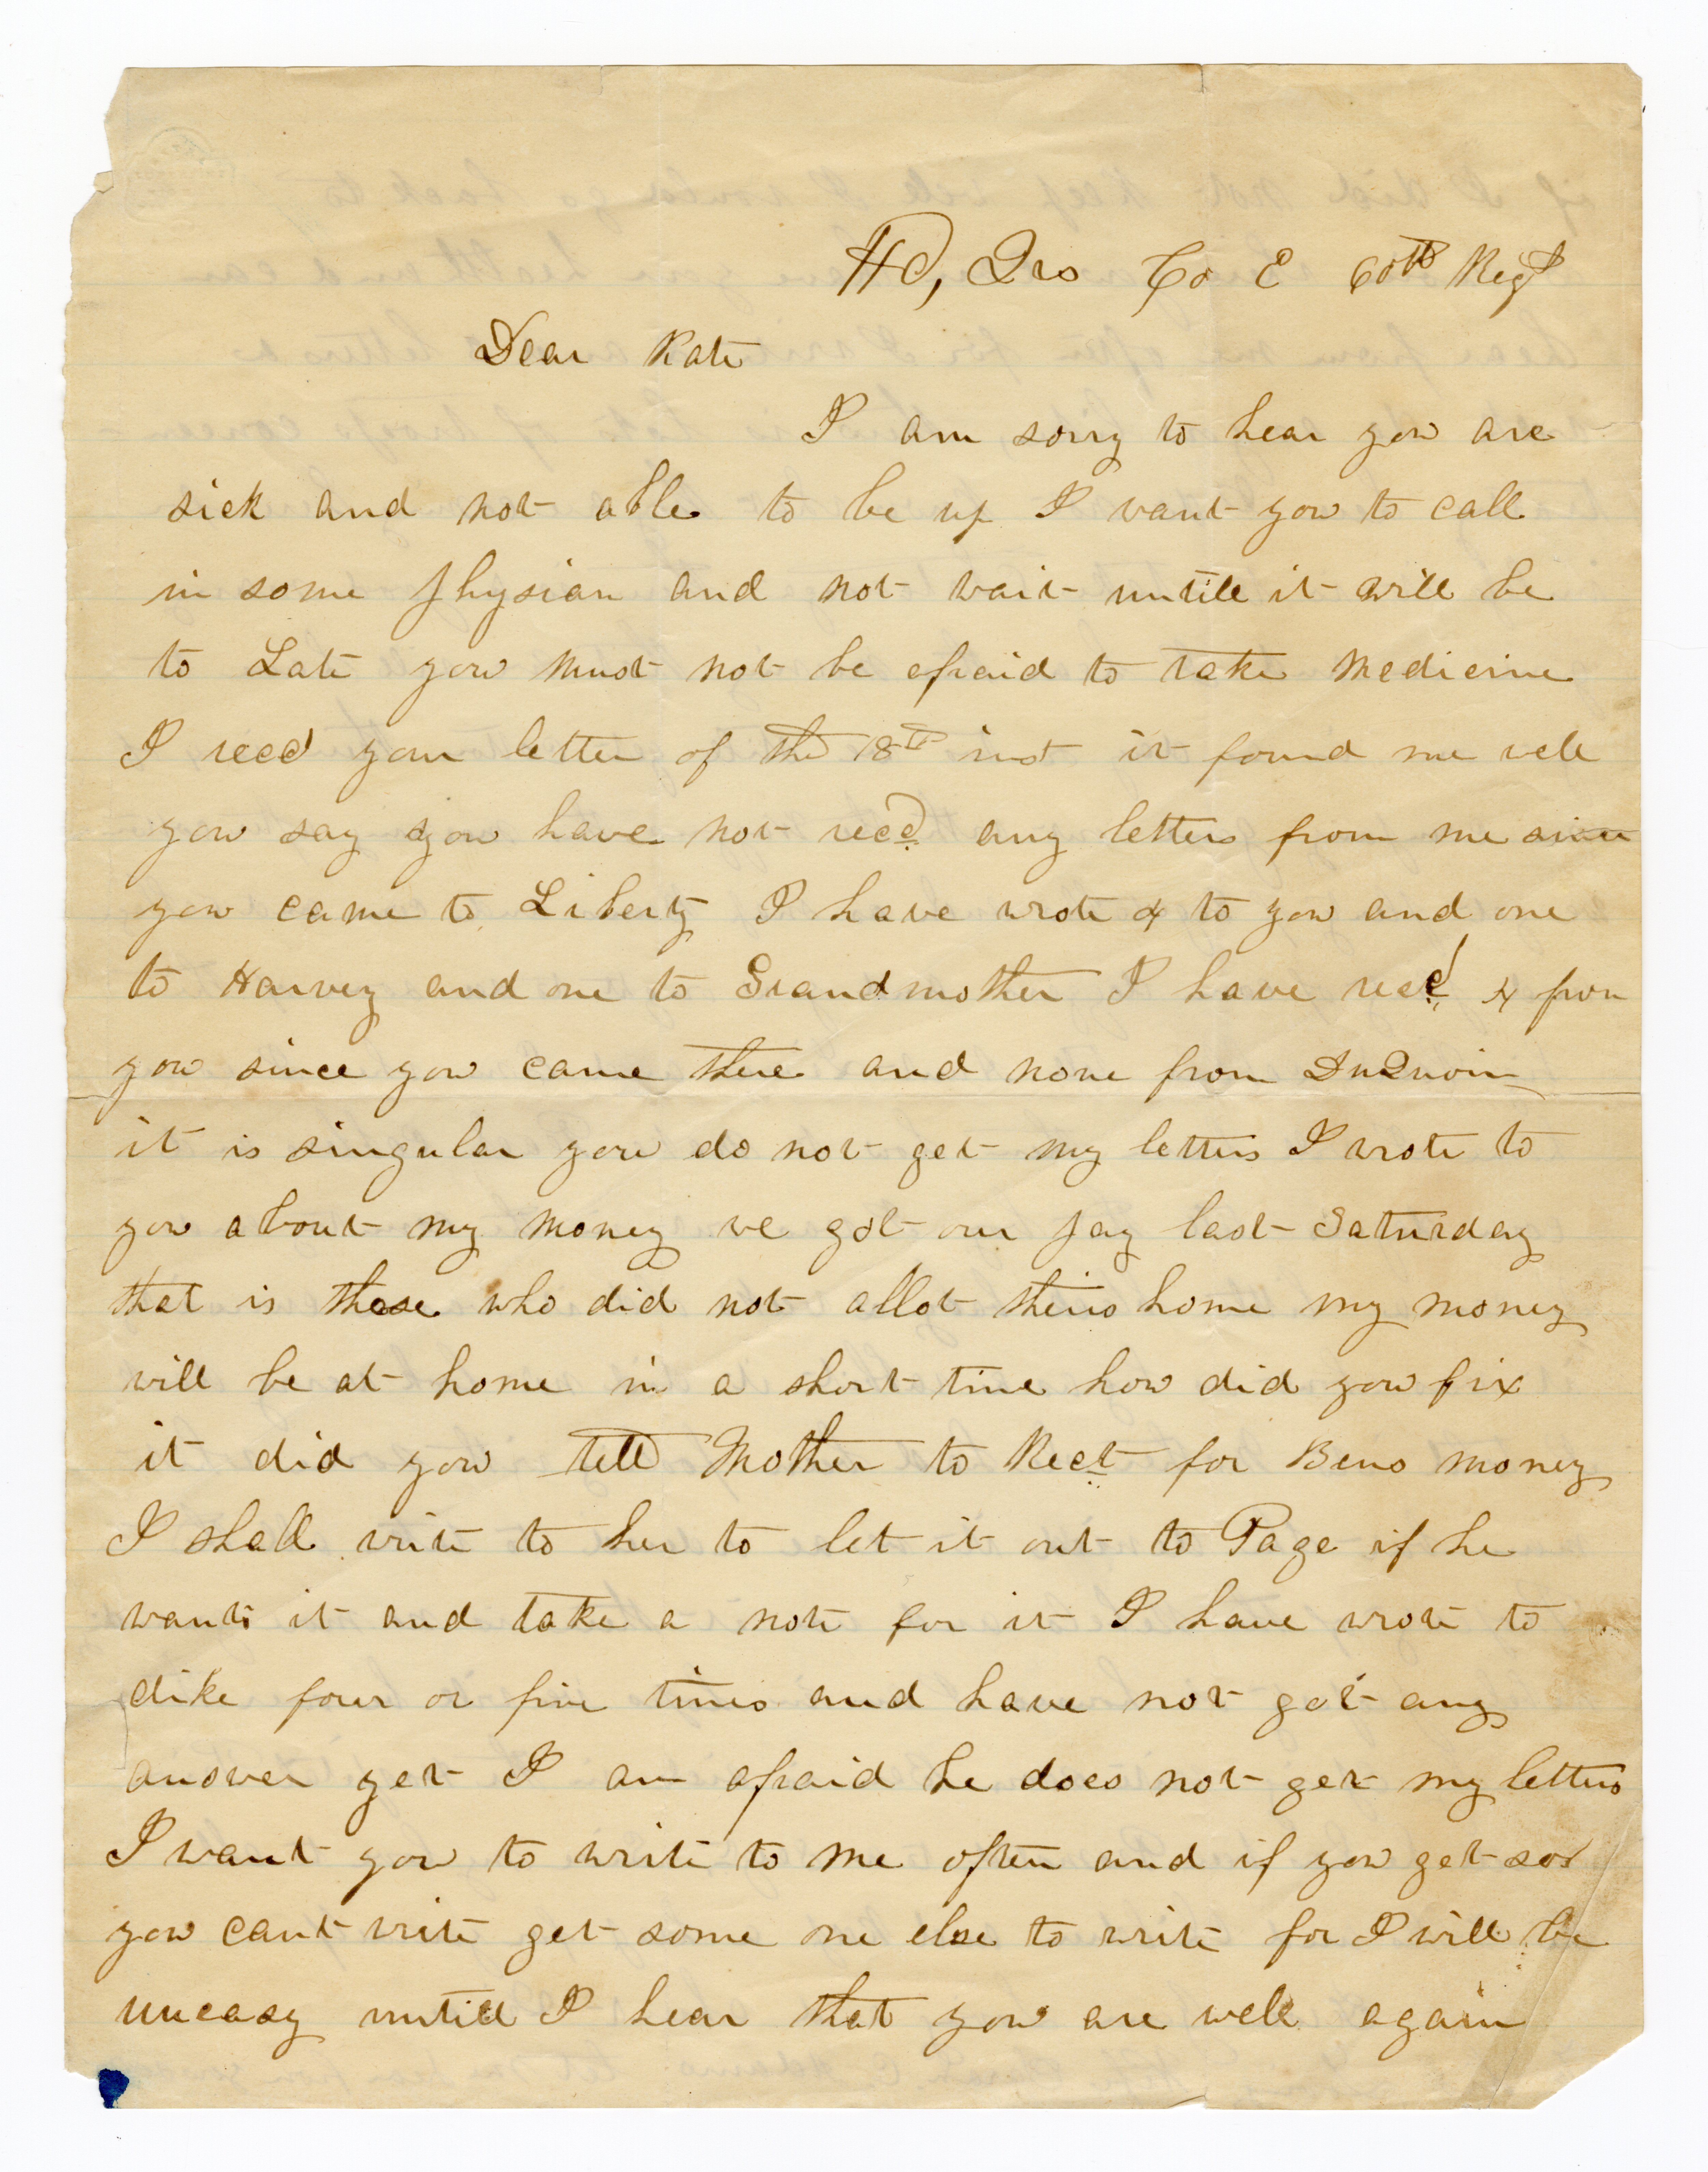 Hd, Qrs Co E 60th Regt
Dear Kate
I am sorry to hear you are
sick and not able to be up I want you to call
in some physian and not wait untill it will be
to Late you must not be afraid to take medicine
I recd your letter of the 18th inst it found me well
you say you have not recd any letters from me since
you came to Liberty I have wrote 4 to you and one
to Harvey and one to Grandmother I have recd 4 from
you since you came there and none from DuQuoin
it is singular you do not get my letters I wrote to
you about my money we got our pay last Saturday
that is those who did not allot theirs home my money
will be at home in a short time how did you fix
it did you tell Mother to Rect for Bens money
I shall write to her to let it out to Page if he
wants it and take a note for it I have wrote to
dike four or five times and have not got any
answer yet I am afraid he does not get my letters
I want you to write to me often and if you get so
you cant write get some one else to write for I will be
uneasy untill I hear that you are well again